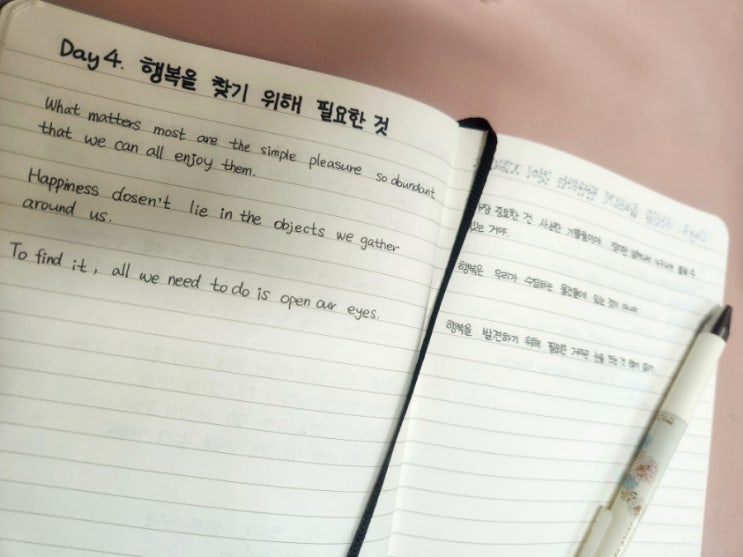 Day 4. 행복을 찾기 위해 필요한 것
What matters most are the simple pleasure so abundant
that we can all enjoy them.
Happiness dosen't lie in the objects we gather
around us.
To find it, all we need to do is open our eyes.
가장 중요한 건 사소한 기쁨들이야.
있는 거야.
행복은 우리가 수집하는 물건들에 있는 것이 아니야
행복을 발견하기 위해 필요한 거라곤 눈을 뜨는 것